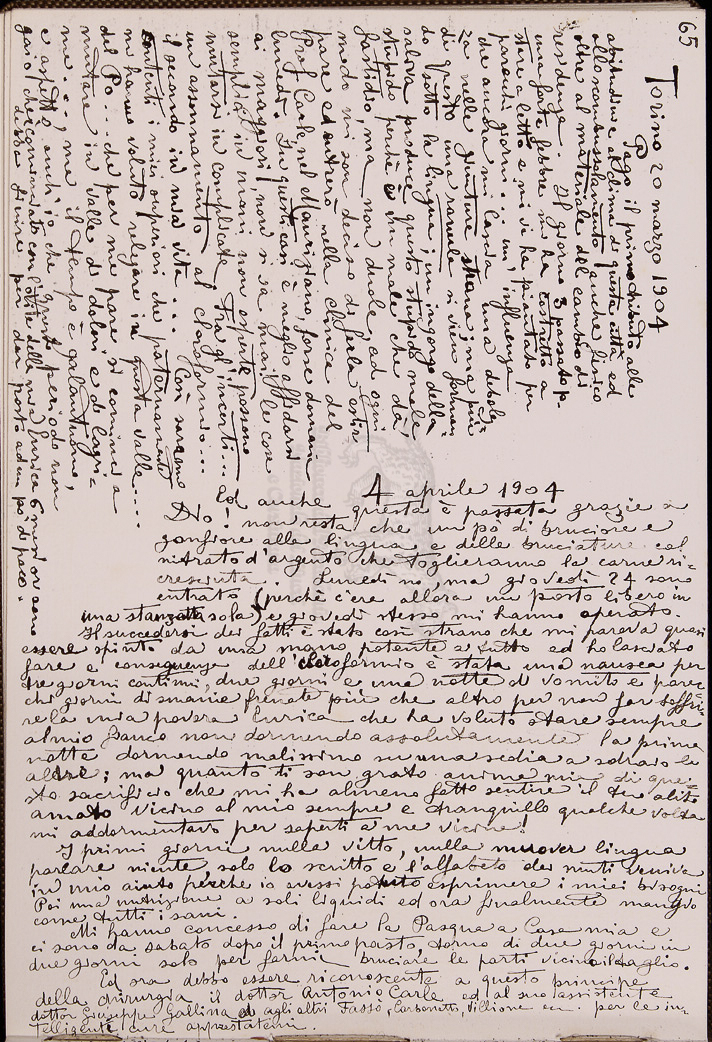 65
Torino 20 marzo 1904
Pago il primo tributo alle
abitudini e al clima di questa città ed
allo scombussolamento anche fisico
oltre al materiale del cambio di
residenza. Il giorno 3 passato p.
una forte febbre mi ha costretto a
stare a letto e mi vi ha piantato per
parecchi giorni... un'influenza
che ancora mi lascia una debolez-
za nelle giunture strana; ma più
di questo una ranula si vien forman-
do sotto la lingua; un ingorgo della
saliva produce questo stupido male
stupido perchè è un male che dà
fastidio, ma non duole, ad ogni
modo mi son deciso di farla estir-
pare ed entrerò nella clinica del
Prof. Carle nel Mauriziano, forse domani
lunedì. In questi casi è meglio affidarsi
ai maggiori, non si sa mai, le cose
semplici in mani non esperte possono
mutarsi in complicate. Tra gl'incerti...
un assonnamento al cloroformio...
il secondo in mia vita.... Così saranno
contenti i miei superiori che paternamente
mi hanno voluto relegare in questa valle....
del Po... che per me pare si cominci a
mutare in valle di dolori e di lagri-
me... ma il tempo è galantuomo,
e aspetto anch'io che questo periodo non
gaio che è cominciato con l'otite della mia Enrica 6 mesi or sono
debba finire per dar posto ad un pò di pace.
4 aprile 1904
Ed anche questa è passata grazie a
Dio! non resta che un pò di bruciore e
gonfiore alla lingua e delle bruciature col
nitrato d'argento che toglieranno la carne ri-
cresciuta. Lunedì no, ma giovedì 24 sono
entrato (perchè c'era allora un posto libero in
una stanzetta sola) e giovedì stesso mi hanno operato.
Il succedersi dei fatti è stato così strano che mi pareva quasi
essere spinto da una mano potente a tutto ed ho lasciato
fare e conseguenza dell'cloroformio è stata una nausea per
tre giorni continui, due giorni e una notte di vomito e parec-
chi giorni di smanie frenate più che altro per non far soffri-
re la mia povera Enrica che ha voluto stare sempre
al mio fianco non dormendo assolutamente la prima
notte dormendo malissimo su una sedia a sdraio le
altre; ma quanto ti son grato anima mia di que-
sto sacrificio che mi ha almeno fatto sentire il tuo alito
amato vicino al mio sempre e tranquillo qualche volta
mi addormentavo per saperti a me vicina!
I primi giorni nulla vitto, nulla muover lingua
parlare niente solo lo scritto e l'alfabeto dei muti veniva
in mio aiuto perchè io avessi potuto esprimere i miei bisogni
Poi una nutrizione a soli liquidi ed ora finalmente mangio
come tutti i sani.
Mi hanno concesso di fare la Pasqua a Casa mia e
ci sono da sabato dopo il primo pasto, torno di due giorni in
due giorni solo per farmi bruciare le parti vicino al taglio.
Ed ora debbo essere riconoscente a questo principe
della chirurgia il dottor Antonio Carle ed al suo assistente
dottor Giuseppe Gallina ed agli altri Fasso, Carbonetti, Villione ecc. per le in-
telligenti cure apprestatemi.